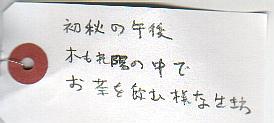 初秋の午後
木もれ陽の中で
お茶を飲む様な生坊